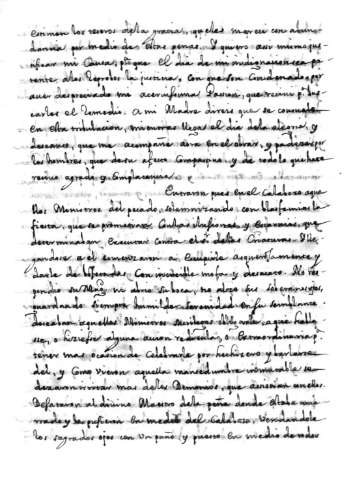 con men los tesoros de la gracia, que les mereci con abun
dancia por medio de estas penas. Y quiero asi mismo jus
tificar mi Causa, para que el dia de mi indignacion sea pa
tente, a los reprobos la justicia, con que son Condenados, por
aver despreciado mi acerbissima Passion, que recivi p. bus
carles el remedio. A mi Madre direis que se consuele
en esta tribulacion, mientras llega el dia de la alegria, y
descanso, que me acompañe aora en el obrar, y padecer por
los hombres, que de su afecto Compasivo, y de todo lo que hace
recivo agrado y Complacencia.
Entraron pues en el Calabozo aque
llos Ministros del pecado, solemnizando con blasfemias la
fiesta, que se prometian Con las ilusiones, y escarnios, que
determinaban executar Contra el Sr de las Criaturas. Y lle
gandose a el comenzaron a escupirle asquerosamente, y
darle de bofetadas Con increible mofa y desacato. No res
pondio su Mag. ni abrio su boca, no alzo sus soberanos ojos,
guardando siempre humilde serenidad en su semblante
Deseaban aquellos Ministros sacrilegos obligarle, a que habla
sse, o hiciesse alguna accion redicula, o extraordinaria p.
tener mas ocasion de Celebrarle por hechicero y burlarse
del, y Como vieron aquella mansedumbre inmutable se
dexaron irritar mas de los Demonios, que asistian con ellos.
Desataron al divino Maestro de la peña donde estaba ama
rrado y le pusieron en medio del Calabozo, vendandole
los sagrados ojos con un paño, y puesto en medio de todos